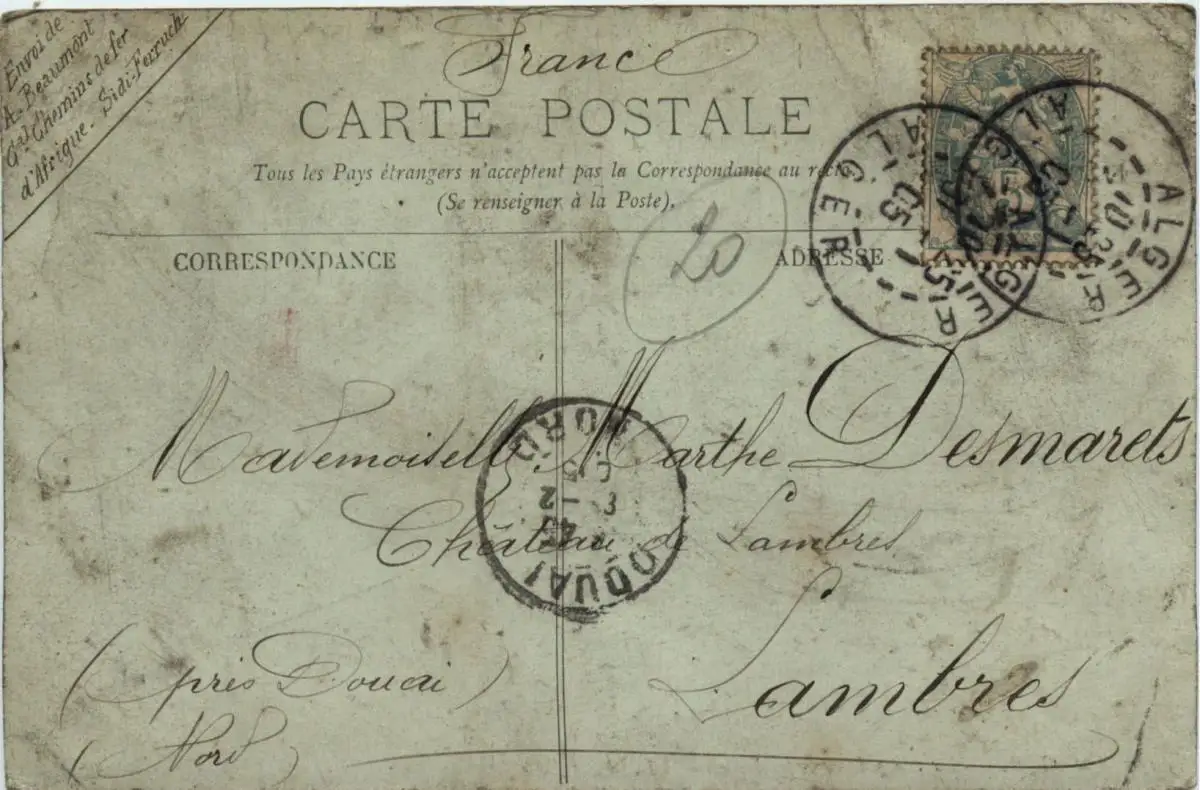 Envoi de
A. Beaumont
Gal Chemins de fer
d'Afrique. Sidi-Ferruch
France
CARTE POSTALE
Tous les Pays étrangers n'acceptent pas la Correspondance au recto
(Se renseigner à la Poste).
CORRESPONDANCE
ADRESSE
20
ALGER
ALGER
ALGER
ALGER
Mademoiselle Marthe Desmarets
Château de Lambres
Lambres
(près Douai)
(Nord)
DOUAI
NORD